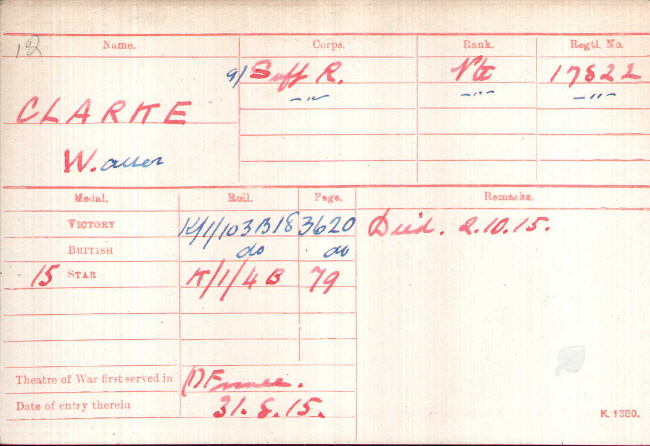 12
Name. Corps. Rank. Regtl. No.
9/ Suff R. Pte 17822
-"- -"- -"-
CLARKE
W.alter
Medal. Roll. Page. Remarks.
VICTORY K/1/103B18 3620 Died. 2.10.15.
BRITISH do do
15 STAR K/1/4 B 79
Theatre of War first served in (1) France.
Date of entry therein 31.8.15.
K. 1380.